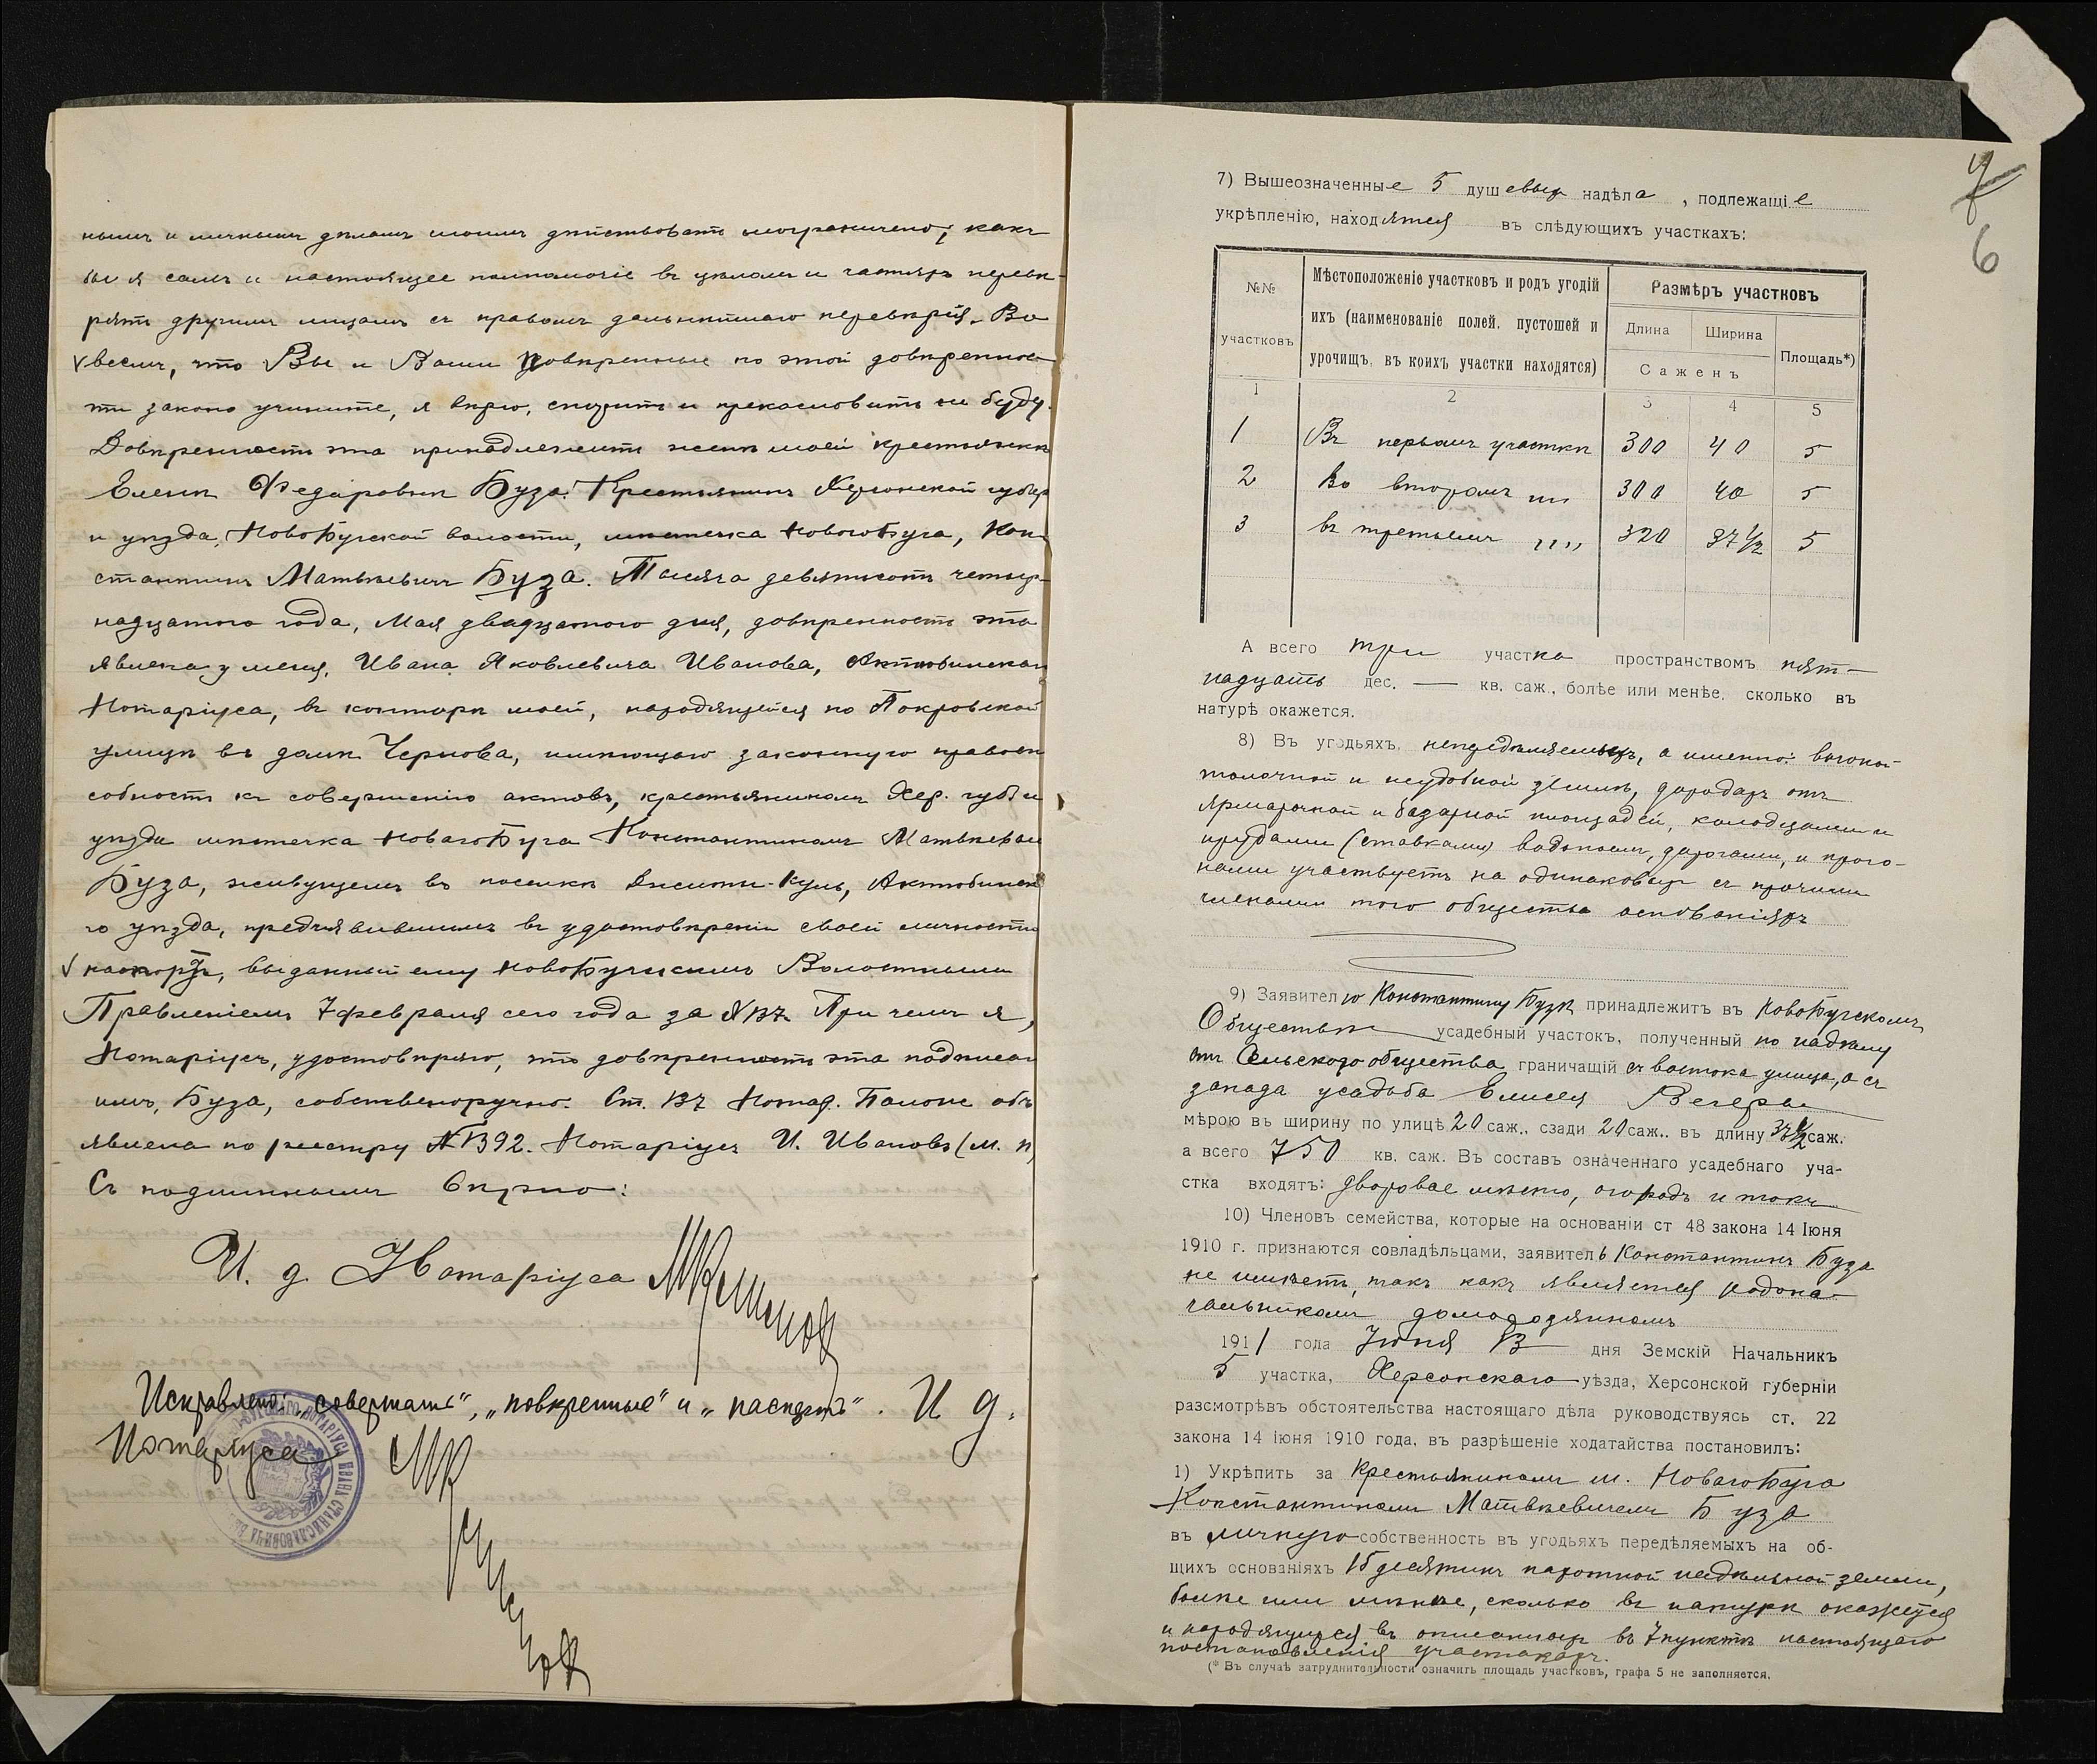 нымъ и личнымъ дѣламъ моимъ дѣйствовать неограничено, какъ
бы я самъ и настоящее полномочіе въ цѣломъ и частяхъ перевѣ-
рять другимъ лицамъ съ правомъ дальнѣйшаго перевѣрія. Во
всемъ, что Вы и Ваши повѣренные по этой довѣреннос-
ти законо учините, я вѣрю, спорить и прекословить не буду.
Довѣренность эта принадлежитъ женѣ моей крестьянкѣ
Еленѣ Федоровнѣ Буза. Крестьянинъ Херсонской губер.
и уѣзда, НовоБугской волости, мѣстечка НовогоБуга, Кон-
стантинъ Матвѣевичъ Буза. Тысяча девятьсотъ четыр-
надцатого года, Мая двадцатого дня, довѣренность эта
явлена у меня, Ивана Яковлевича Иванова, Актюбинскаго
Нотаріуса, въ конторѣ моей, находящейся по Покровской
улицѣ въ домѣ Чернова, имѣющаго законную правосп
собность къ совершенію актовъ, крестьяниномъ Хер. губ. и
уѣзда мѣстечка НовагоБуга Константиномъ Матвѣевым
Буза, живущемъ въ поселкѣ Куль, Актюбинска
го уѣзда, предъявившимъ въ удостовѣреніи своей личности
паспортъ, выданный ему НовоБугскимъ Волостнымъ
Правленіемъ 7 февраля сего года за № 137. При чемъ я,
Нотаріусъ, удостовѣряю, что довѣренность эта подписан
имъ, Буза, собственоручно. Ст. 137 Нотар. Полож. объ
явлена по реестру № 1392. Нотаріусъ И. Ивановъ (м. п.)
Съ подлиннымъ вѣрно:
И. д. Нотаріуса
Исправлено: „совершать", „повѣренные" и „паспортъ". И д.
Нотаріуса
6
7) Вышеозначенные 5 душевыхъ надѣла, подлежащіе
укрѣпленію, находятся въ слѣдующихъ участкахъ:
№№ участковъ
Мѣстоположеніе участковъ и родъ угодій
ихъ (наименованіе полей, пустошей и
урочищъ, въ коихъ участки находятся)
Размѣръ участковъ
Длина Ширина Площадь*)
Саженъ
1 2 3 4 5
1 Въ первомъ участкѣ 300 40 5
2 Во второмъ „„ 300 40 5
3 въ третьемъ „„ 320 37 ½ 5
А всего три участка пространствомъ пят-
надцать дес. — кв. саж., болѣе или менѣе, сколько въ
натурѣ окажется.
8) Въ угодьяхъ, непедѣляемыхъ, а именно: выгонной
толочной и неудобной землѣ, доходахъ отъ
ярмарочной и базарной площадей, колодцами и
прудами (ставками) водопоемъ, дорогами, и прого-
нами участвуетъ на одинаковыхъ съ прочими
членами того общества основаніяхъ
9) Заявителю Константину Бузѣ принадлежитъ въ НовоБугскомъ
Обществѣ усадебный участокъ, полученный по надѣлу
отъ Сельскаго общества граничащій съ востока улица, а съ
запада усадьба Елисея
мѣрою въ ширину по улицѣ 20 саж., сзади 20 саж., въ длину 37½ саж.
а всего 750 кв. саж. Въ составъ означеннаго усадебнаго уча-
стка входятъ: дворовое мѣсто, огородъ и токъ
10) Членовъ семейства, которые на основаніи ст 48 закона 14 Іюня
1910 г. признаются совладѣльцами, заявитель Константинъ Буза
не имѣетъ, такъ какъ является родона-
чальникомъ домохозяиномъ
1911 года Іюня 13 дня Земскій Начальникъ
5 участка, Херсонскаго уѣзда, Херсонской губерніи
разсмотрѣвъ обстоятельства настоящаго дѣла руководствуясь ст. 22
закона 14 іюня 1910 года, въ разрѣшеніе ходатайства постановилъ:
1) Укрѣпить за Крестьяниномъ м. НовагоБуга
Константиномъ Матвѣевичемъ Буза
въ личную собственность въ угодьяхъ передѣляемыхъ на об-
щихъ основаніяхъ 15 десятинъ пахотной надѣльной земли,
болѣе или менѣе, сколько въ натурѣ окажется
и находящихся въ описанныхъ въ 7 пунктѣ настоящаго
постановленія участкахъ.
(* Въ случаѣ затруднительности означить площадь участковъ, графа 5 не заполняется.